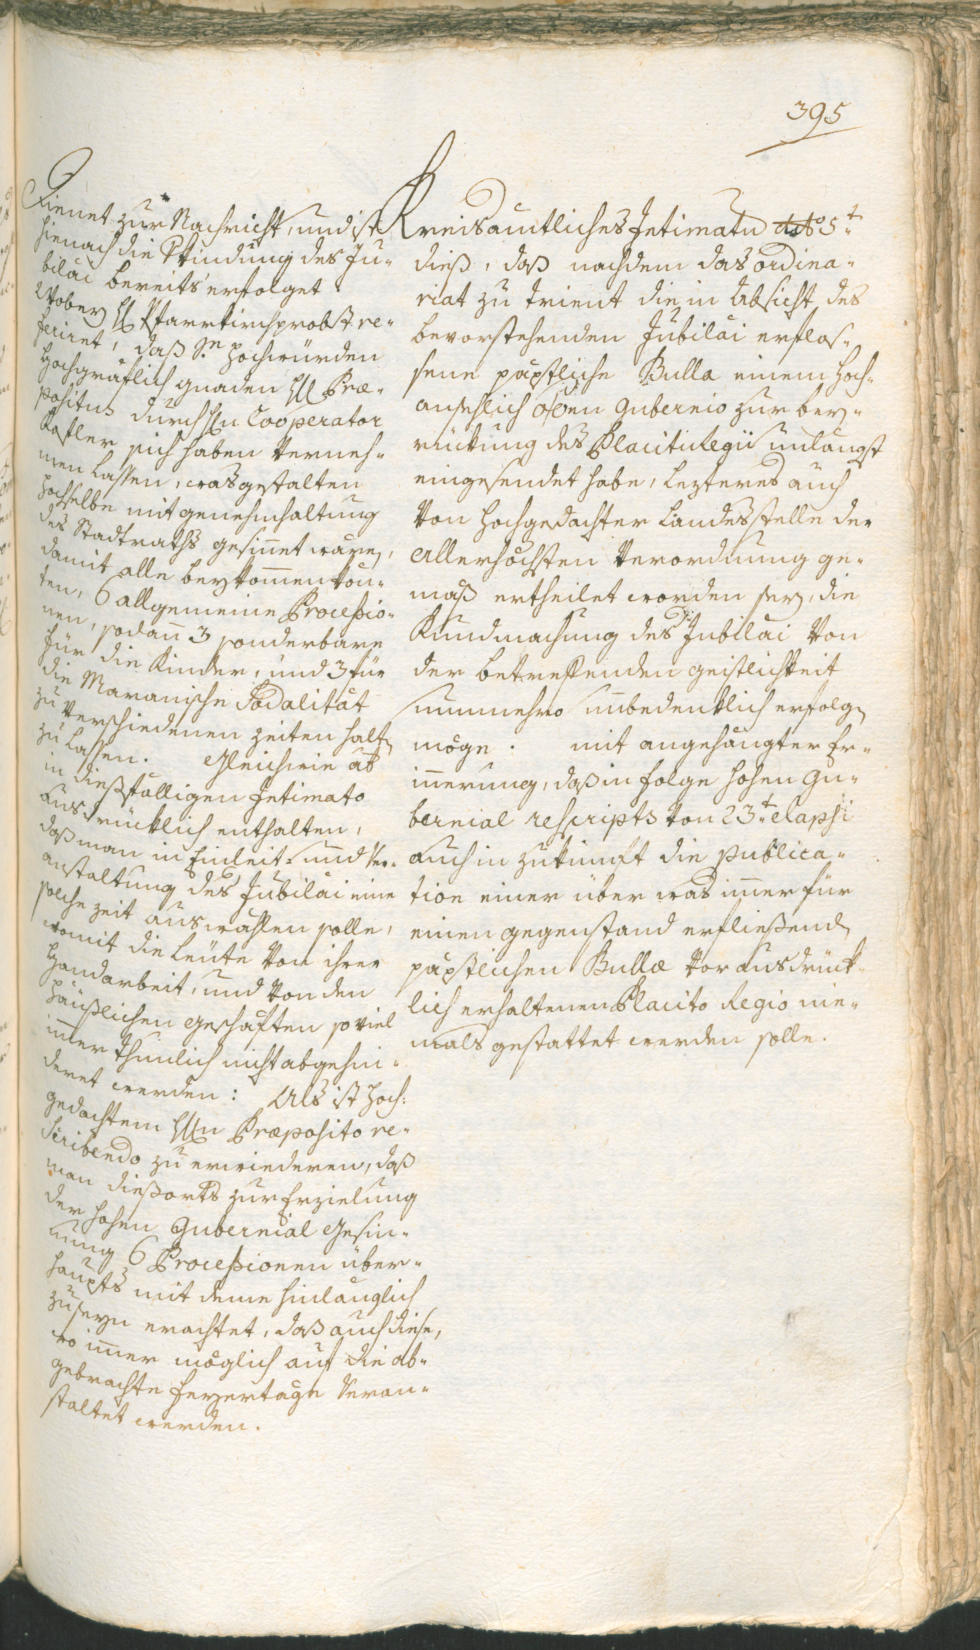 395
Dienet zur Nachricht, und ist
hienach die Kündung des Ju-
bilæi bereits erfolget.
Wobey H. Pfarrkirchprobst re-
feriret, daß Sr. Hochwürden
Hochgräflich gnaden H. Præ-
positus durch Hn Cooperator
sich haben verneh-
men lassen, wasgestalten
hochselbe mit genehmhaltung
des Stadtraths gesinnet wären,
damit alle beykommen kön-
ten, 6 allgemeine Proceßio-
nen, sodann 3 sonderbare
für die Kinder, und 3 für
die Maranische Sodalität
zu verschiedenen zeiten halten
zu lassen. Gleichwie ab
in dießfälligen Intimato
ausdrücklich enthalten,
daß man in Einleit- und Ver-
anstaltung des Jubilæi eine
solche zeit auswählen solle,
womit die Leute von ihrer
Handarbeit, und von den
häußlichen geschäften so viel
immer thunlich nicht abgehin-
deret werden: Als ist Hoch-
gedachtem Hn Præposito re-
scribendo zu erwiederen, daß
man dießorts zur Erzielung
der hohen Gubernial Gesin-
nung 6 Proceßionen über-
haupts mit deme hinlänglich
zu seyn erachtet, daß auch diese,
wo immer möglich auf die ab-
gebrachte Feyertäge veran-
staltet werden.
Kreisamtliches Intimatum dto 5t
dieß, daß nachdem das ordina-
riat zu Trient die in Absicht des
bevorstehenden Jubilæi erflos-
sene päpstliche Bulla einem Hoch-
ansehlich oöen Gubernio zur bey-
rückung des Placiti Regii unlängst
eingesendet habe, lezteres auch
von Hochgedachter Landesstelle der
Allerhöchsten Verordnung ge-
mäß ertheilet worden sey, die
Kundmachung des Jubilæi von
der betreffenden geistlichkeit
nunmehro unbedenklich erfolgen
möge. mit angehängter Er-
innerung, daß in folge hohen Gu-
bernial rescripts von 23t elapsi
auch in zukunft die publica-
tion einer über was immer für
einen gegenstand erfließenden
päpstlichen Bullæ vor ausdrück-
lich erhaltenen Placito Regio nie-
mals gestattet werden solle.